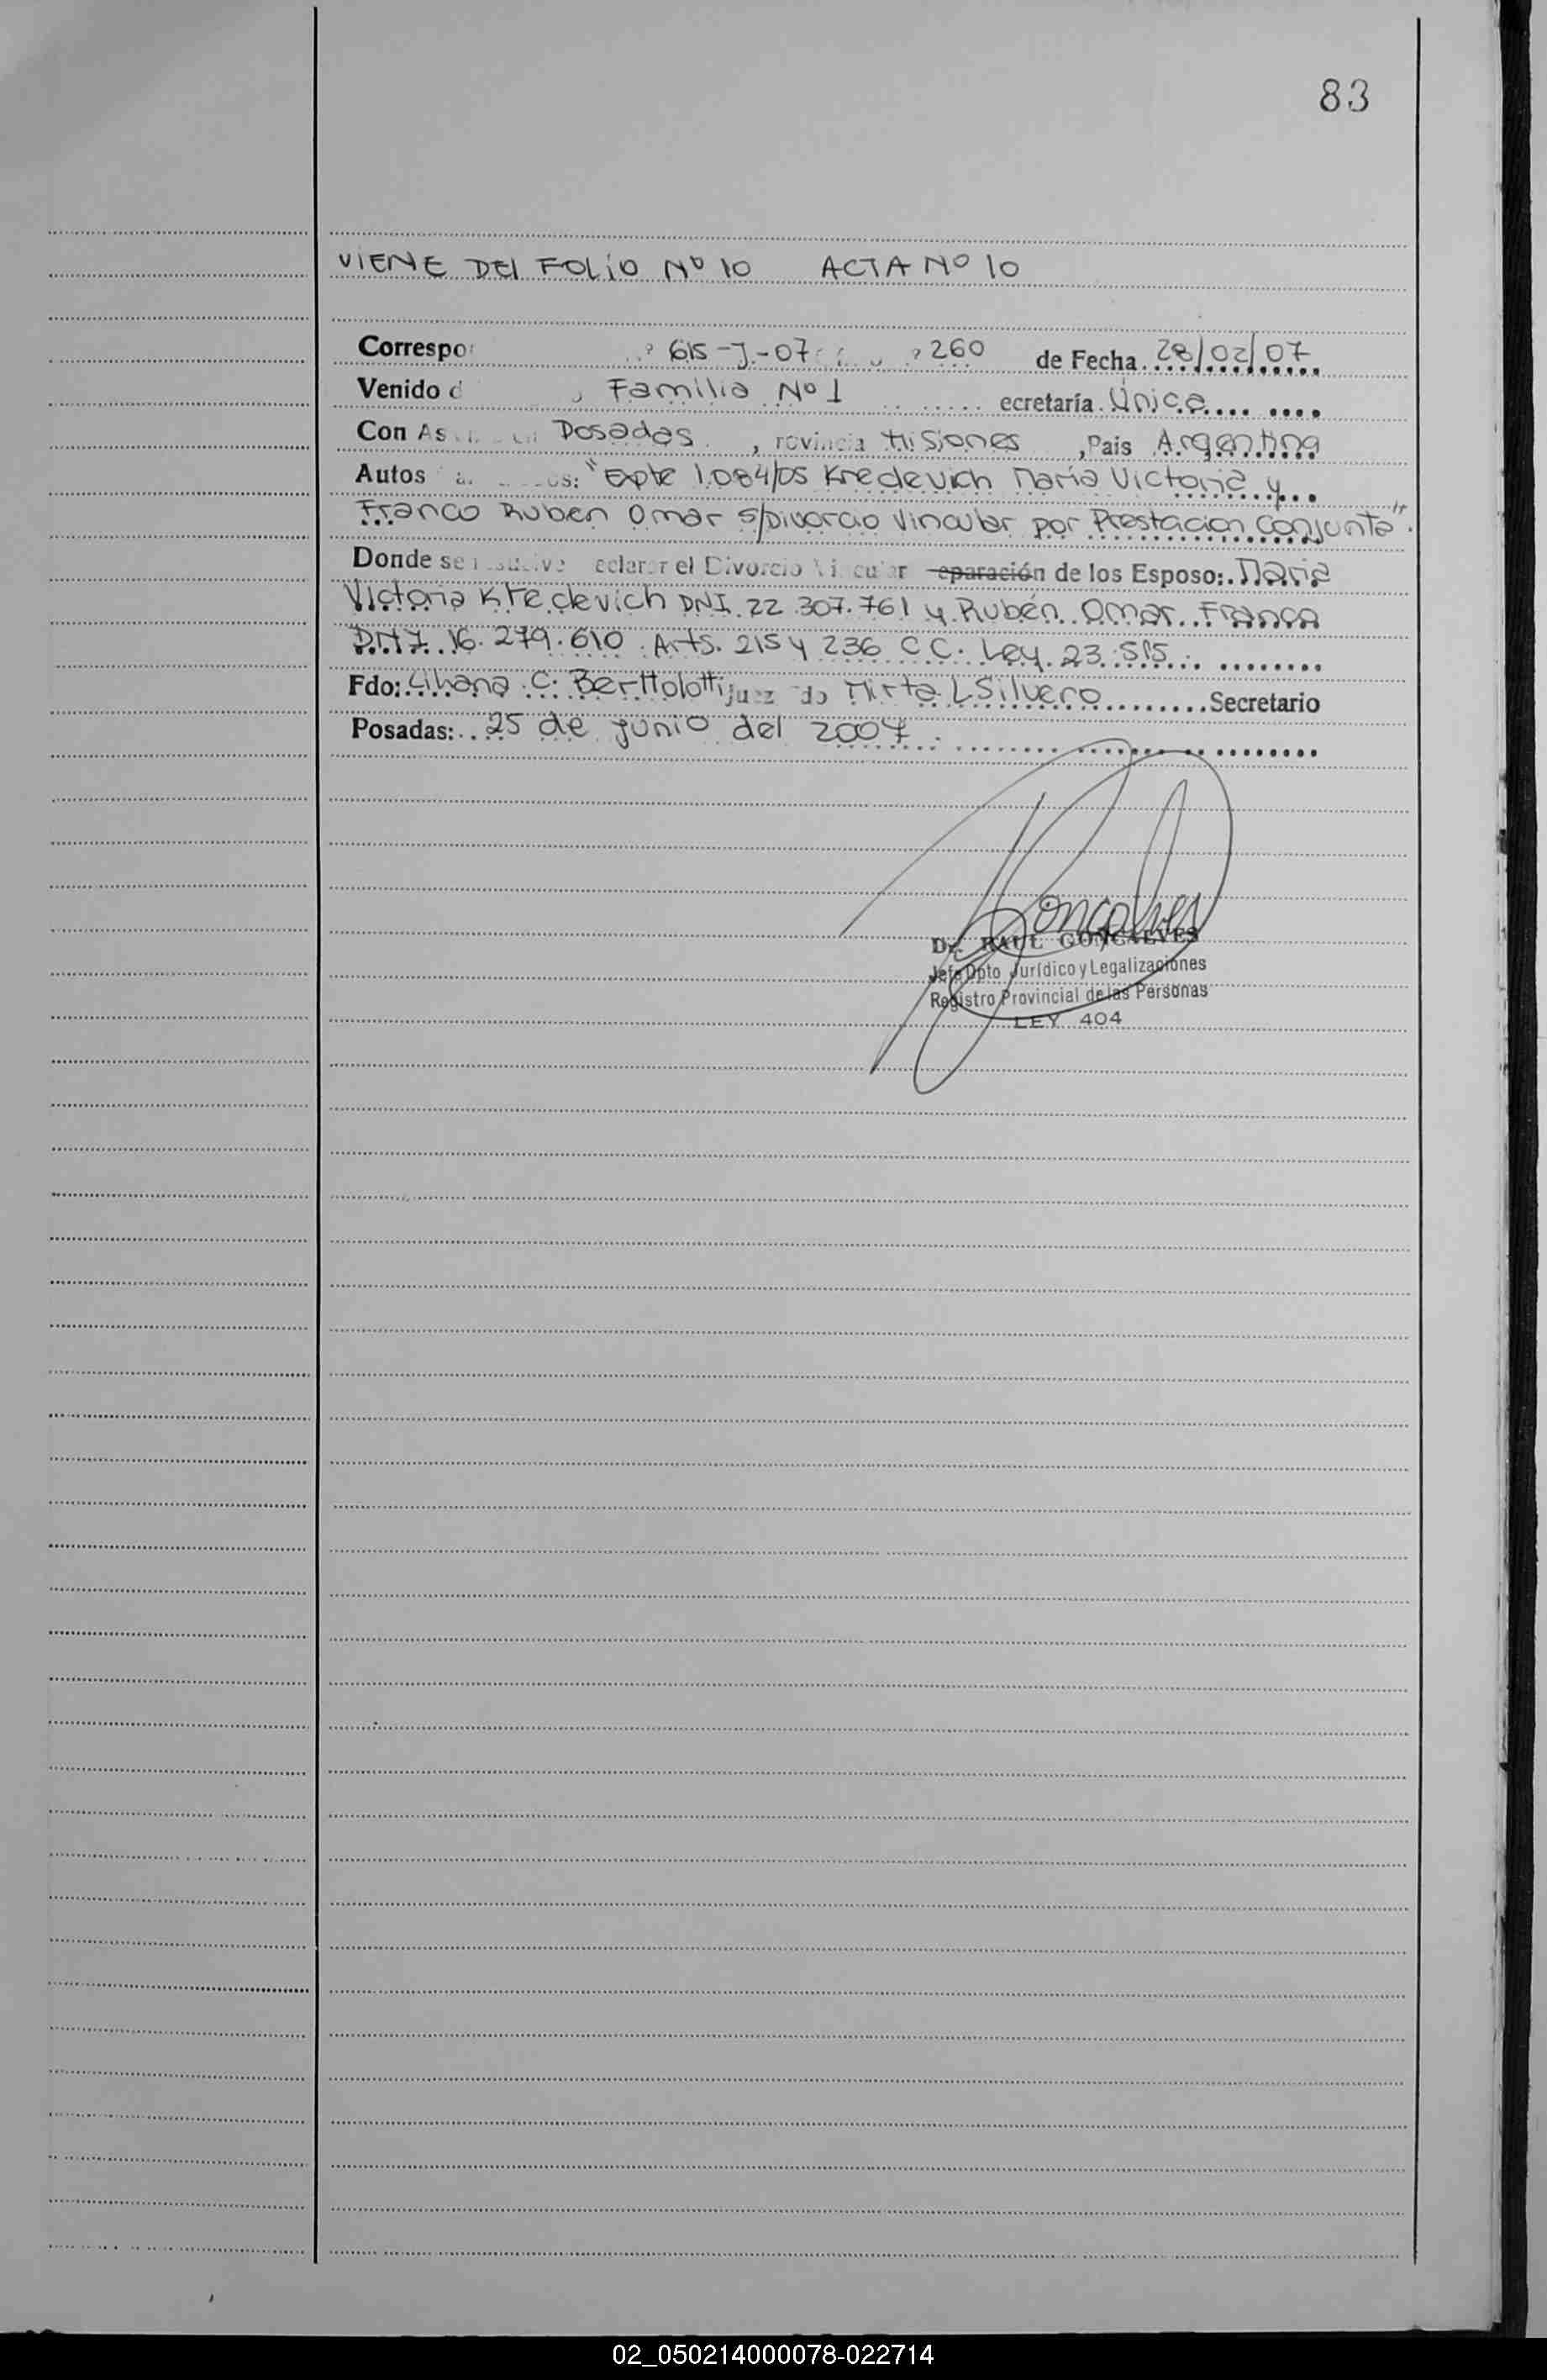 83
VIENE DEL FOLIO Nº 10 ACTA Nº 10
Correspo 615-J-07 260 de Fecha 28/02/07
Venido d Familia Nº 1 ecretaría Única
Con As Posadas, rovincia Misiones, Pais Argentina
Autos us: "Expte 1.084/05 Kredevich María Victoria y
Franco Ruben Omar s/Divorcio Vincular por Prestacion Conjunta".
Donde se eclarar el Divorcio eparación de los Esposo: Maria
Victoria Kredevich DNI. 22.307.761 y Rubén Omar Franca
DNI. 16.279.610. Arts. 215 y 236 C.C. Ley 23.515.
Fdo: Liliana C. Berttolotti juez do Mirta L Silvero Secretario
Posadas: 25 de junio del 2007
Dr. RAUL GONCALVES
Jefe Dpto Jurídico y Legalizaciones
Registro Provincial de las Personas
LEY 404
02_050214000078-022714